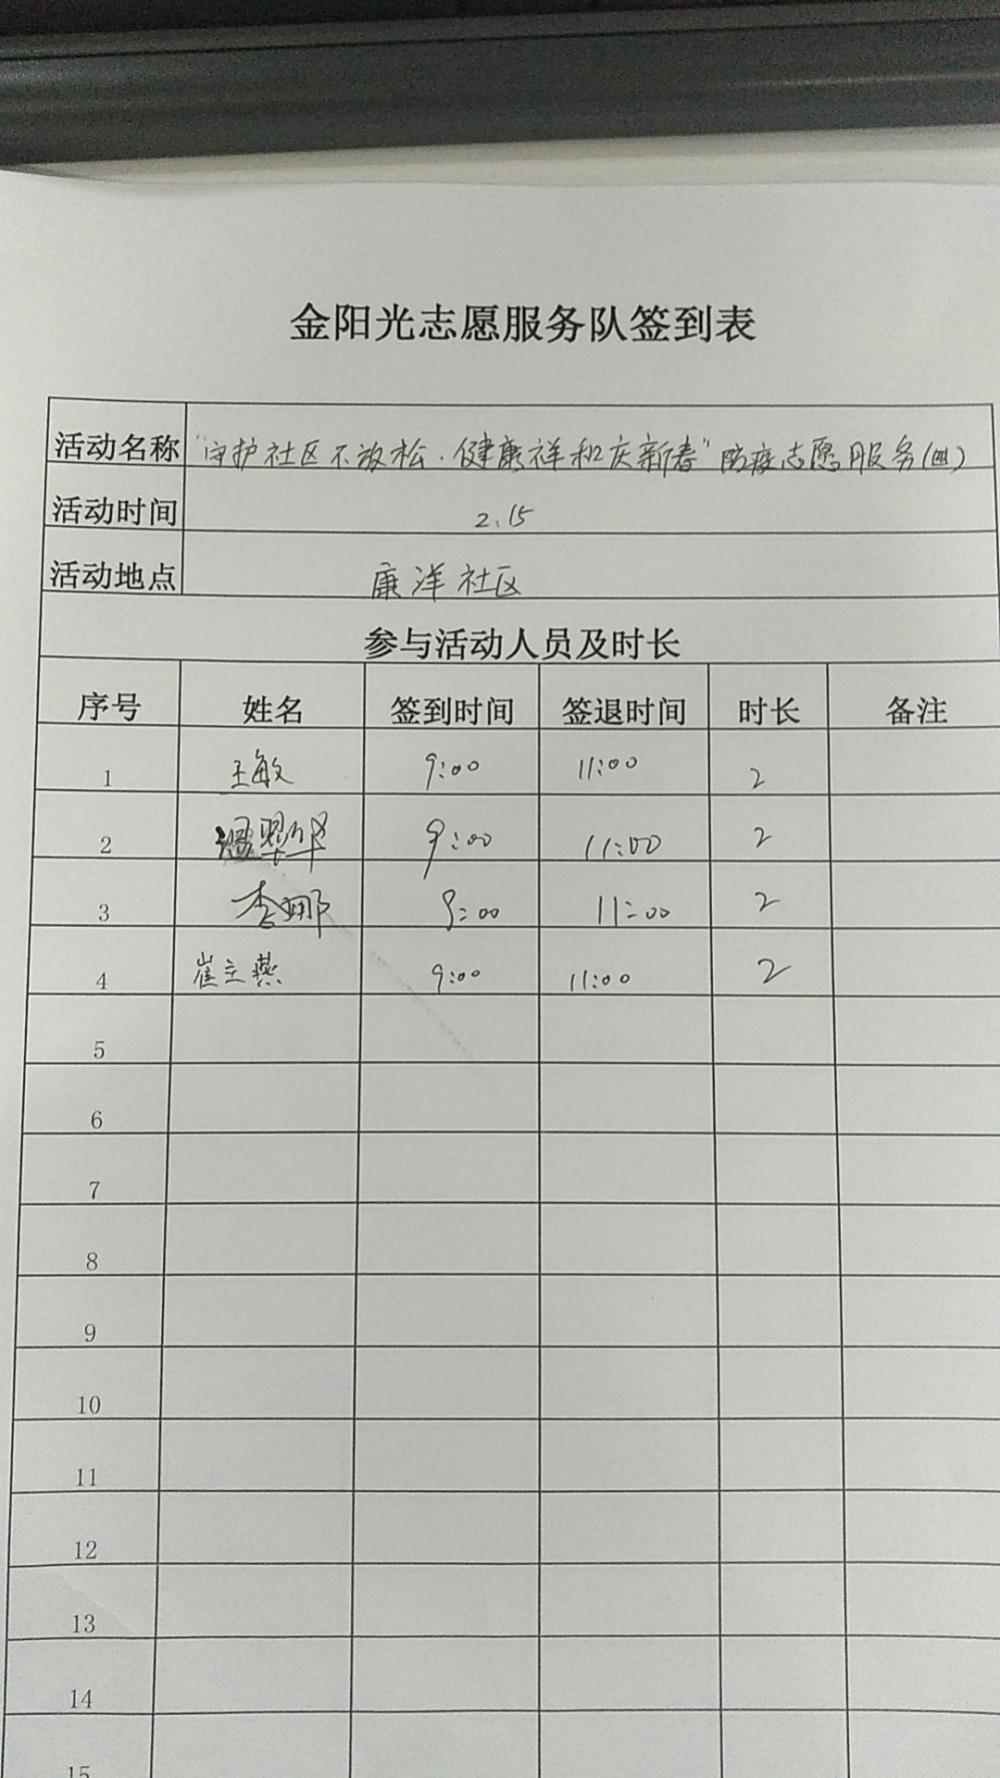 金阳光志愿服务队签到表
活动名称 "守护社区不放松·健康祥和庆新春"防疫志愿服务(四)
活动时间 2.15
活动地点 康洋社区
参与活动人员及时长
序号 姓名 签到时间 签退时间 时长 备注
1 王敏 9:00 11:00 2
2 9:00 11:00 2
3 李娜 9:00 11:00 2
4 崔立燕 9:00 11:00 2
5
6
7
8
9
10
11
12
13
14
15